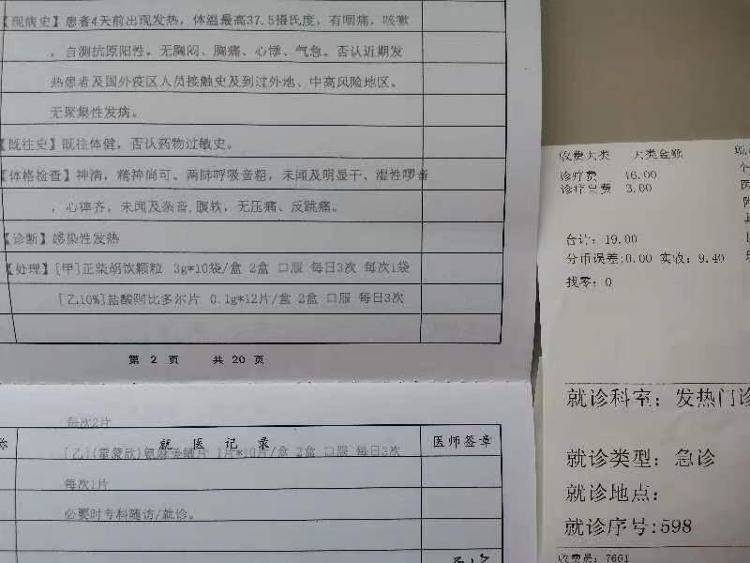 【现病史】患者4天前出现发热，体温最高37.5摄氏度，有咽痛，咳嗽
，自测抗原阳性。无胸闷、胸痛、心悸、气急。否认近期发
热患者及国外疫区人员接触史及到过外地、中高风险地区。
无聚集性发病。
【既往史】既往体健，否认药物过敏史。
【体格检查】神清，精神尚可。两肺呼吸音粗，未闻及明显干、湿性啰音
，心律齐，未闻及杂音，腹软，无压痛、反跳痛。
【诊断】感染性发热
【处理】[甲]正柴胡饮颗粒 3g*10袋/盒 2盒 口服 每日3次 每次1袋
[乙10%]盐酸阿比多尔片 0.1g*12片/盒 2盒 口服 每日3次
第 2 页 共 20 页
每次2片
称 就 医 记 录 医师签章
[乙] 1片*10片/盒 2盒 口服 每日3次
每次1片
必要时专科随访/就诊。
收费大类 大类金额
诊疗费 16.00
诊疗自费 3.00
合计: 19.00
分币误差:0.00 实收: 9.40
找零: 0
就诊科室: 发热门诊
就诊类型: 急诊
就诊地点:
就诊序号:598
收费员: 7661